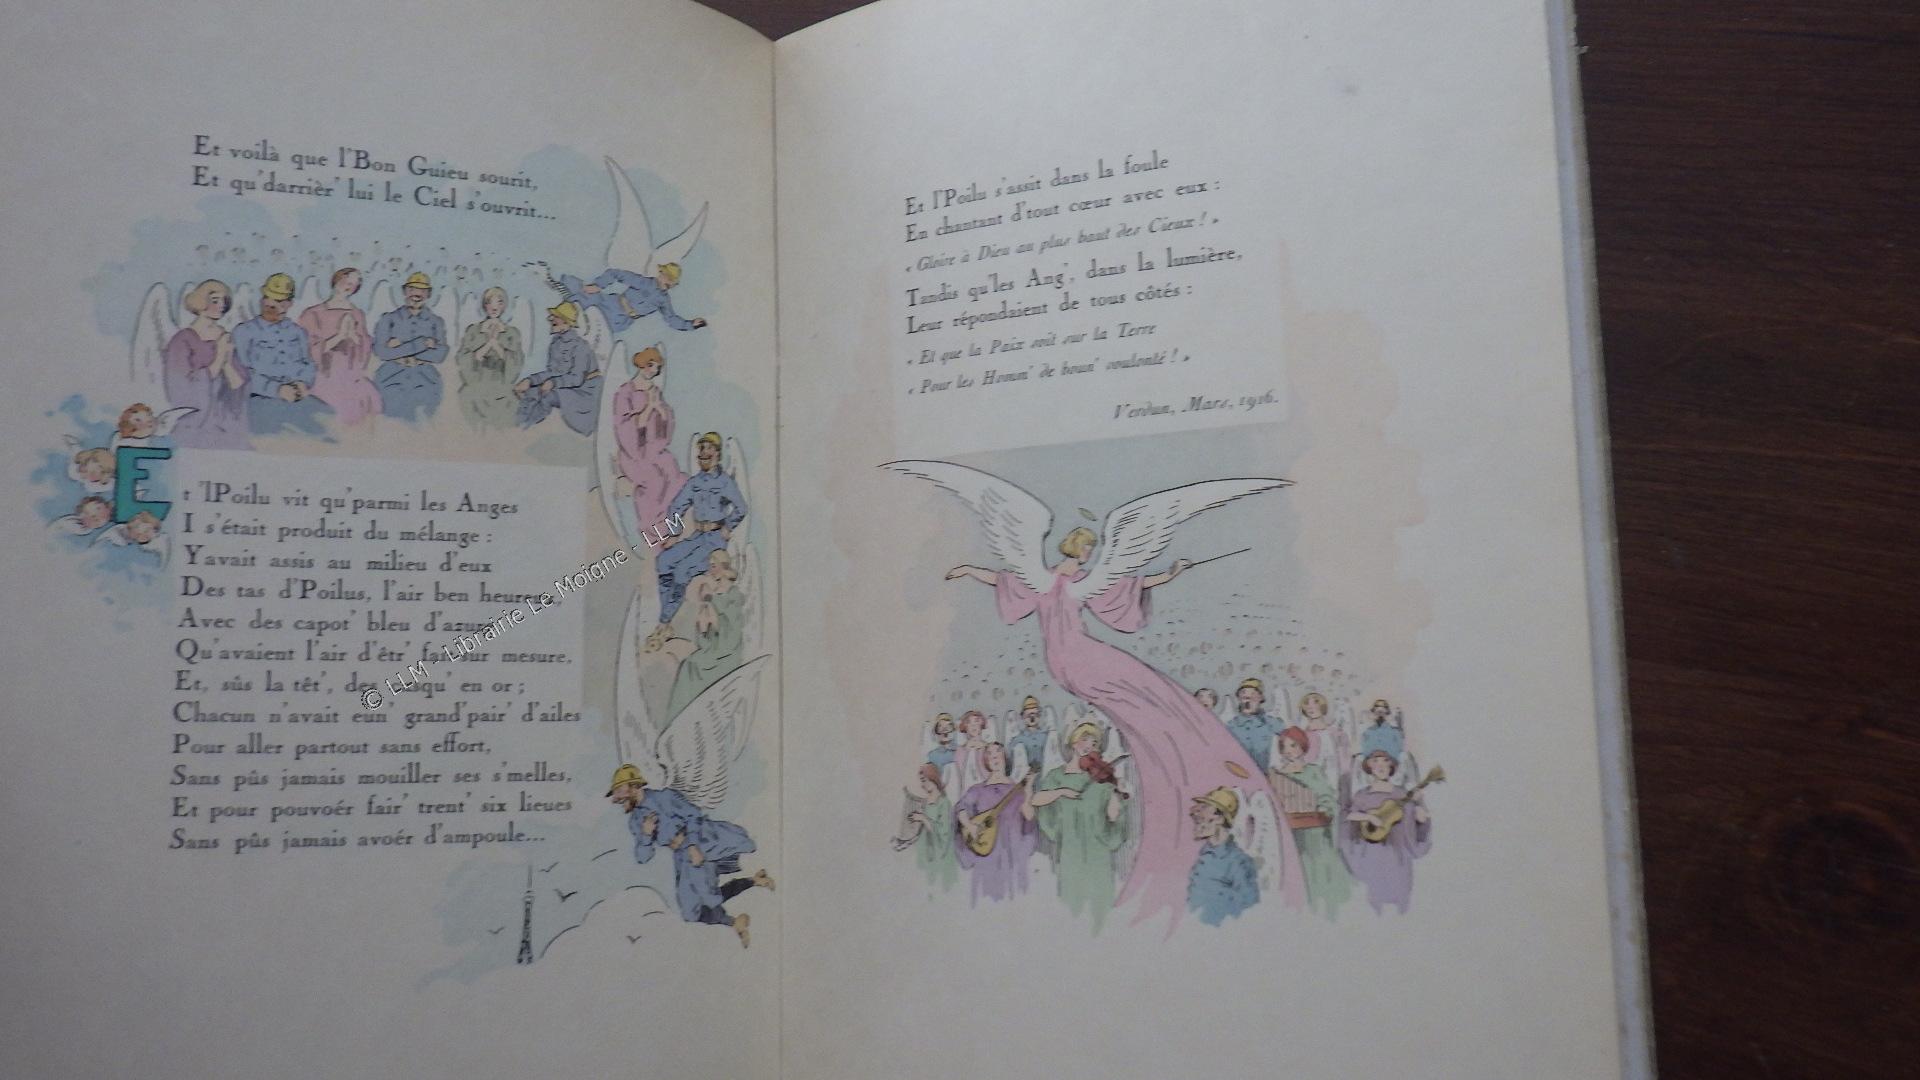 Et voilà que l'Bon Guieu sourit,
Et qu'darrièr' lui le Ciel s'ouvrit...
Et 'lPoilu vit qu'parmi les Anges
I s'était produit du mélange :
Yavait assis au milieu d'eux
Des tas d'Poilus, l'air ben heureux,
Avec des capot' bleu d'azur
Qu'avaient l'air d'êtr' fait sur mesure,
Et, sûs la têt', des casqu' en or ;
Chacun n'avait eun' grand'pair' d'ailes
Pour aller partout sans effort,
Sans pûs jamais mouiller ses s'melles,
Et pour pouvoér fair' trent' six lieues
Sans pûs jamais avoér d'ampoule...
Et l'Poilu s'assit dans la foule
En chantant d'tout cœur avec eux :
« Gloire à Dieu au plus haut des Cieux ! »
Tandis qu'les Ang', dans la lumière,
Leur répondaient de tous côtés :
« Et que la Paix soit sur la Terre
« Pour les Homm' de boun' voulonté ! »
Verdun, Mars, 1916.
© LLM - Librairie Le Moigne - LLM